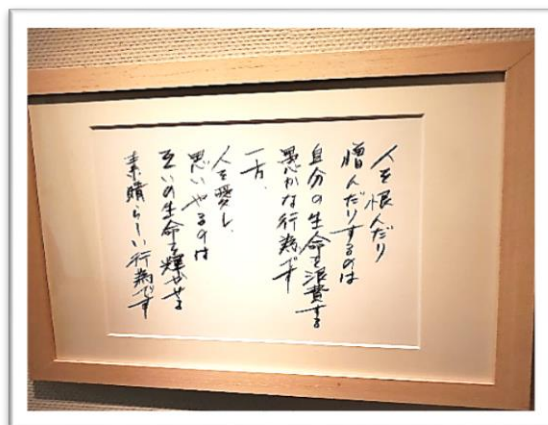 人を恨んだり
憎んだりするのは
自分の生命を浪費する
愚かな行為です
一方、
人を愛し、
思いやるのは
互いの生命を輝かせる
素晴らしい行為です